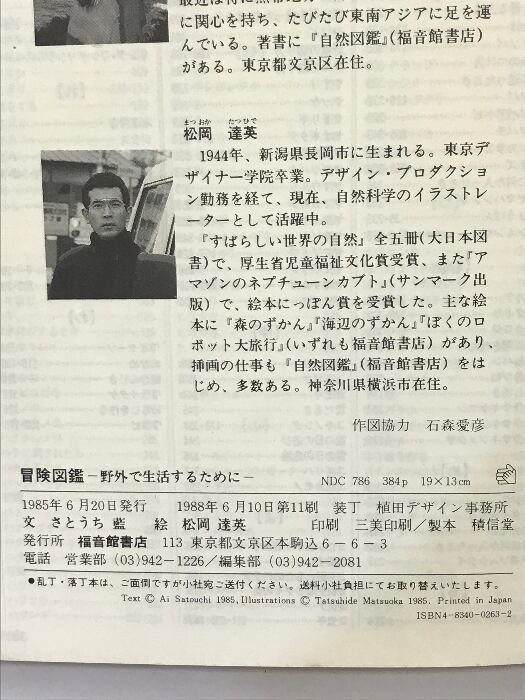 最近は特に熱帯地方
に関心を持ち、たびたび東南アジアに足を運
んでいる。著書に『自然図鑑』(福音館書店)
がある。東京都文京区在住。
まつおか たつひで
松岡 達英
1944年、新潟県長岡市に生まれる。東京デ
ザイナー学院卒業。デザイン・プロダクショ
ン勤務を経て、現在、自然科学のイラストレ
ーターとして活躍中。
『すばらしい世界の自然』全五冊(大日本図
書)で、厚生省児童福祉文化賞受賞、また『ア
マゾンのネプチューンカブト』(サンマーク出
版)で、絵本にっぽん賞を受賞した。主な絵
本に『森のずかん』『海辺のずかん』『ぼくのロ
ボット大旅行』(いずれも福音館書店)があり、
挿画の仕事も『自然図鑑』(福音館書店)をは
じめ、多数ある。神奈川県横浜市在住。
作図協力 石森愛彦
冒険図鑑－野外で生活するために－ NDC 786 384p 19×13cm
1985年6月20日発行 1988年6月10日第11刷 装丁 植田デザイン事務所
文 さとうち 藍 絵 松岡 達英 印刷 三美印刷／製本 積信堂
発行所 福音館書店 113 東京都文京区本駒込6－6－3
電話 営業部(03)942－1226／編集部(03)942－2081
●乱丁・落丁本は、ご面倒ですが小社宛ご送付ください。送料小社負担にてお取り替えいたします。
Text © Ai Satouchi 1985, Illustrations © Tatsuhide Matsuoka 1985. Printed in Japan
ISBN4-8340-0263-2